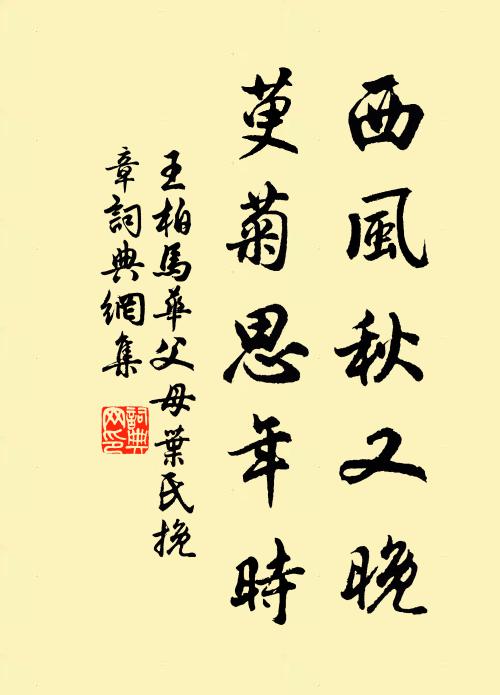 西風秋又晚
萸菊思年時
王柏馬華父母葉氏挽
章詞典網集
詞典
网印